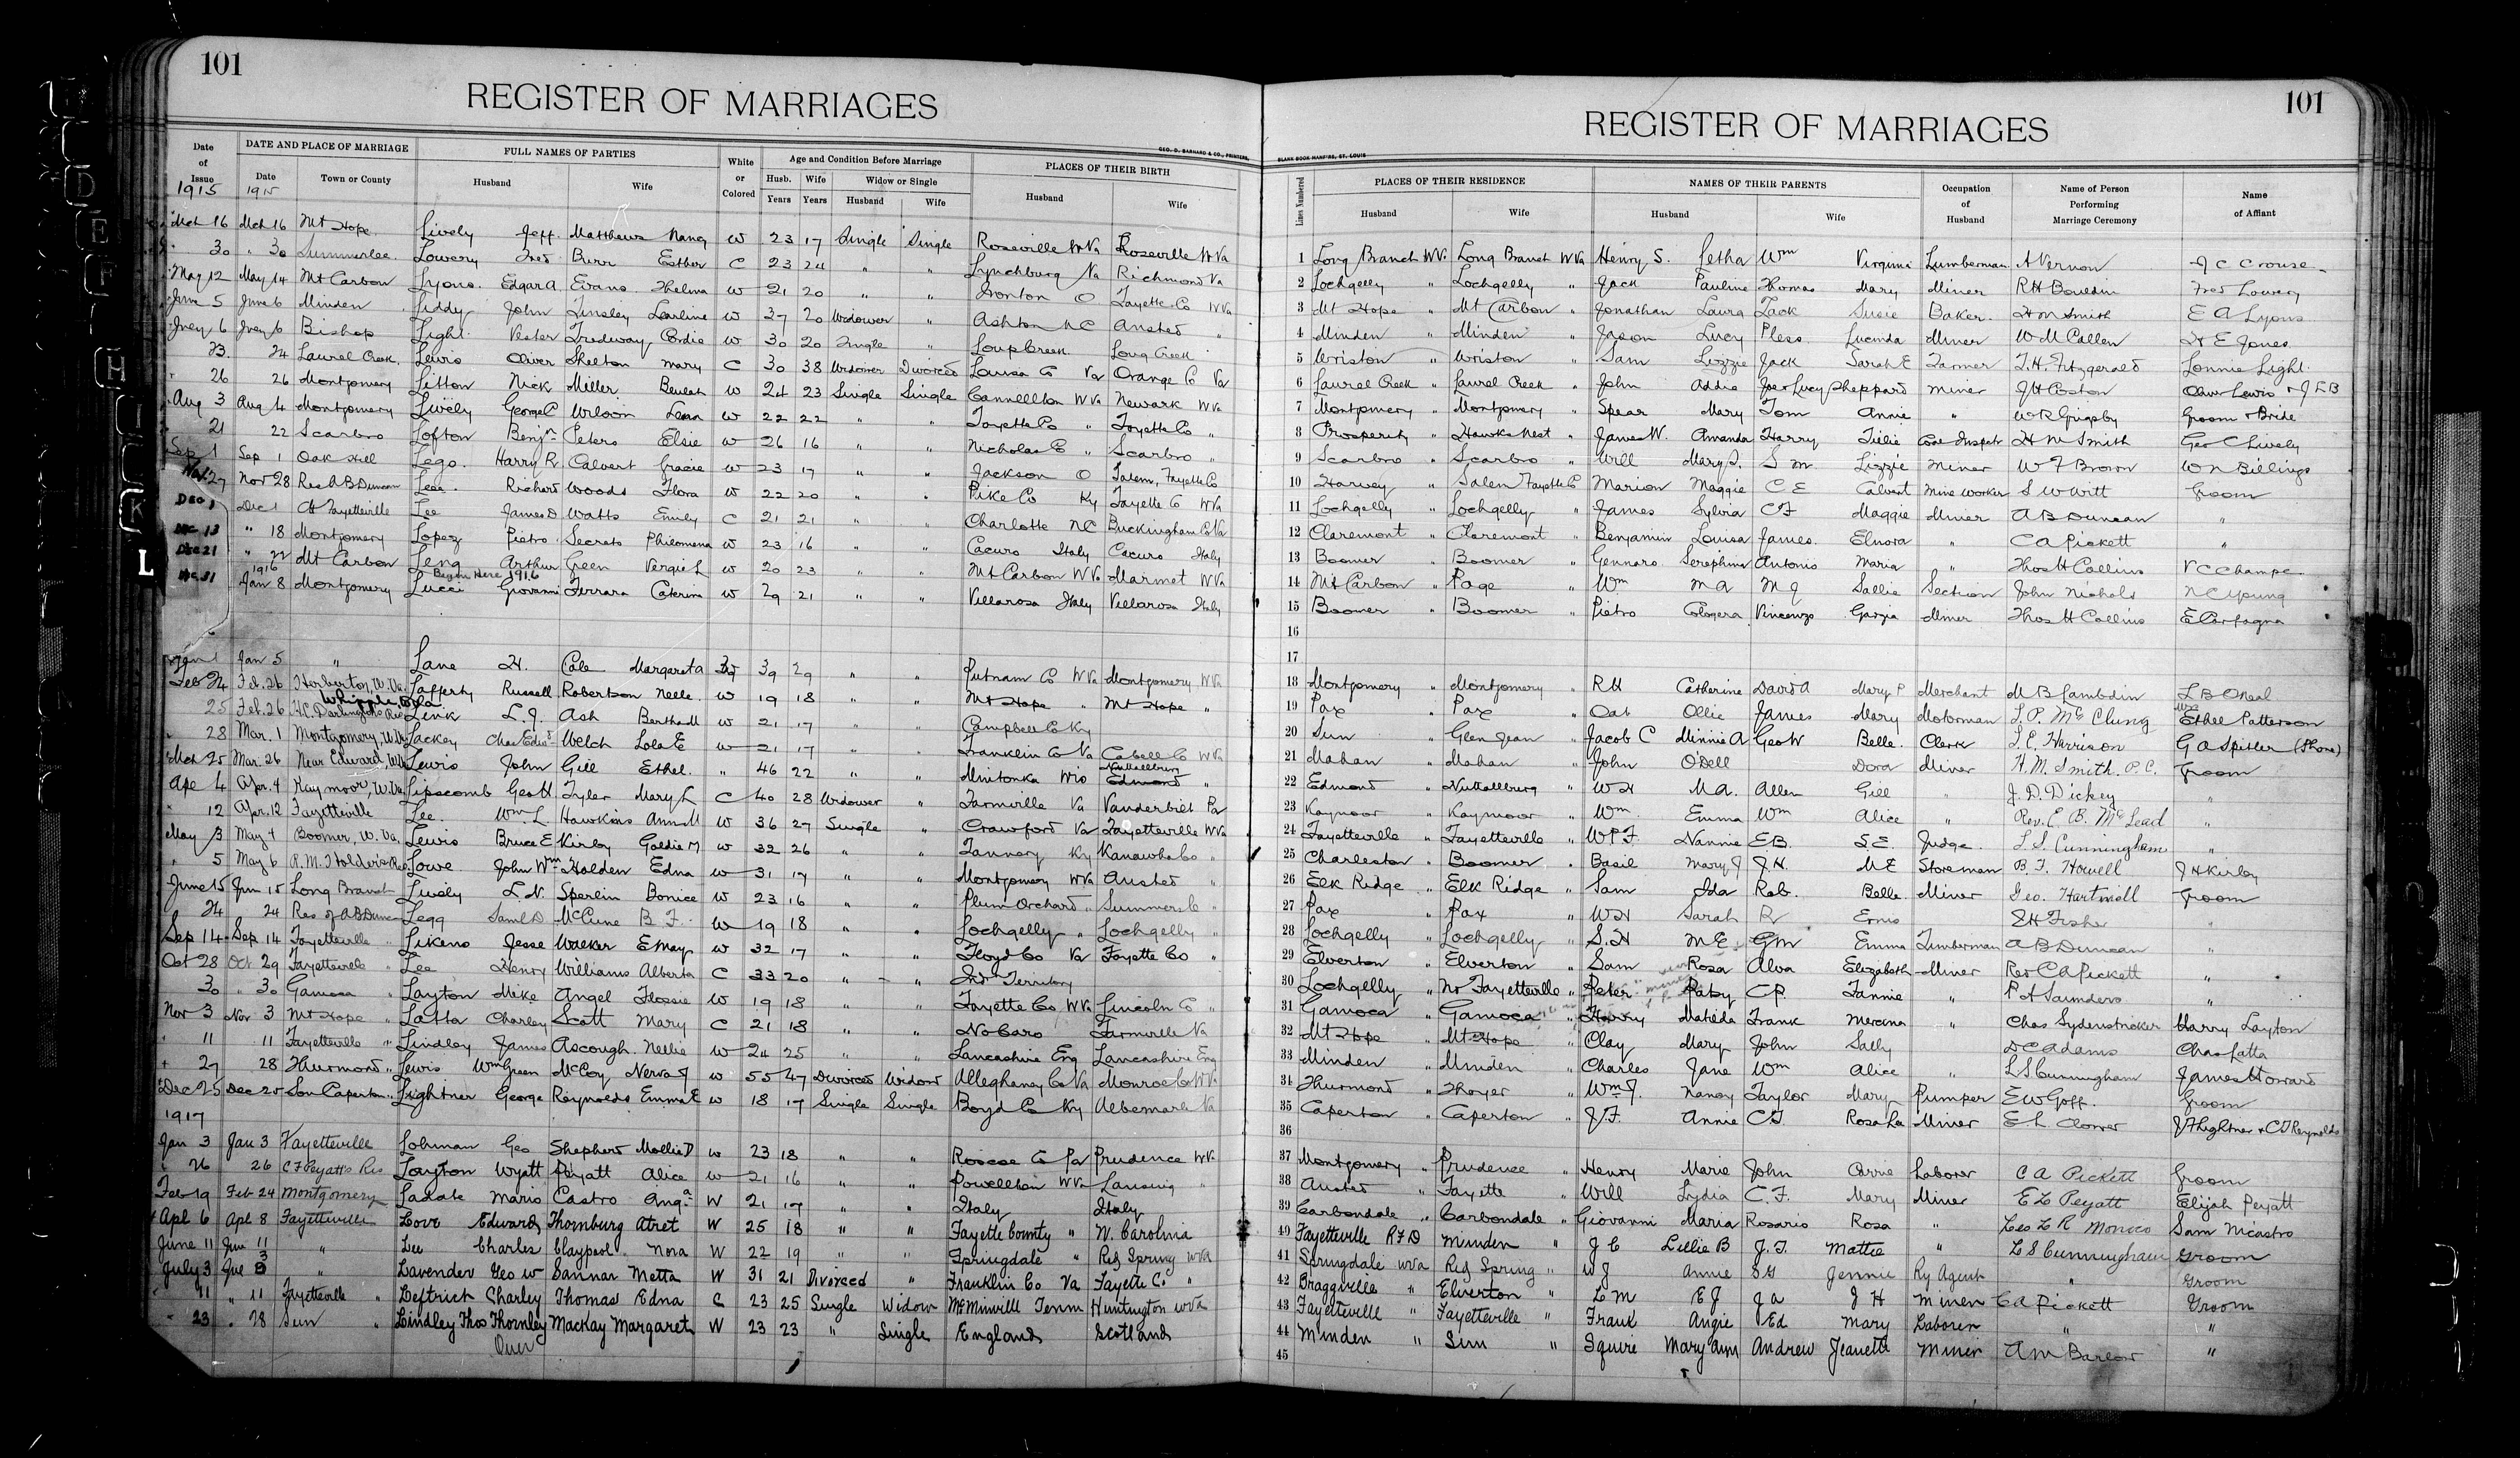 101
REGISTER OF MARRIAGES
GEO. D. BARNARD & CO., PRINTERS,
Date of Issue DATE AND PLACE OF MARRIAGE FULL NAMES OF PARTIES White or Colored Age and Condition Before Marriage PLACES OF THEIR BIRTH
Date Town or County Husband Wife Husb. Years Wife Years Widow or Single Husband Wife Husband Wife
1915 1915
Mch 16 Mch 16 Mt Hope Lively Jeff Matthews Nancy W 23 17 Single Single Roseville W Va Roseville W Va
" 30 " 30 Summerlee Lowery Fred Burr Esther C 23 24 " " Lynchburg Va Richmond Va
May 12 May 14 Mt Carbon Lyons Edgar A Evans Thelma W 21 20 " " Ironton O Fayette Co W Va
June 5 June 6 Minden Liddy John Tinsley Learline W 37 20 Widower " Ashton NC Ansted "
July 6 July 6 Bishop Light Vester Tredway Cordie W 30 20 Single " Loup Creek Long Creek
23 24 Laurel Creek Lewis Oliver Shelton Mary C 30 38 Widower Divorced Louisa Co Va Orange Co Va
" 26 26 Montgomery Litton Nick Miller Beulah W 24 23 Single Single Cannellton W Va Newark W Va
Aug 3 Aug 4 Montgomery Lively George C Wilson Lena W 22 22 " " Fayette Co " Fayette Co "
21 22 Scarbro Lofton Benjn Peters Elsie W 26 16 " " Nicholas Co " Scarbro "
Sep 1 Sep 1 Oak Hill Lego Harry R Calvert Gracie W 23 17 " " Jackson O Salem, Fayette Co
Nov 27 Nov 28 Res A B Duncan Lee Richard Woods Flora W 22 20 " " Pike Co Ky Fayette Co W Va
Dec 1 Dec 1 At Fayetteville Lee James D Watts Emily C 21 21 " " Charlotte NC Buckingham Co Va
Dec 13 " 18 Montgomery Lopez Pietro Secreto Philomena W 23 16 " " Cacuro Italy Cacuro Italy
Dec 21 " 22 Mt Carbon Leng Arthur Green Vergie L W 20 23 " " Mt Carbon W Va Marmet W Va
1916 Began Here 1916
Dec 31 Jan 8 Montgomery Lucci Giovanni Ferrara Caterina W 29 21 " " Villarosa Italy Villarosa Italy
Jan 1 Jan 5 " Lane H. Cole Margaret A W 39 29 " " Putnam Co W Va Montgomery W Va
Feb 24 Feb. 26 Herberton, W. Va. Lafferty Russell Robertson Nelle W 19 18 " " Mt Hope " Mt Hope "
Whipple, W Va
25 Feb. 26 H.C. Darlington's Res Link L. J. Ash Bertha M W 21 17 " " Campbell Co Ky
" 28 Mar. 1 Montgomery, W. Va Lackey Chas Edwd Welch Lola E W 21 17 " " Franklin Co Va Cabell Co W Va
Mch 25 Mar. 26 Near Edward, W Va Lewis John Gill Ethel " 46 22 " " Minitonka Wis Nuttallburg "
Apr 4 Apr. 4 Kaymoor, W. Va. Lipscomb Geo H Tyler Mary L C 40 28 Widower " Farmville Va Vanderbilt Pa
" 12 Apr. 12 Fayetteville Lee Wm L. Hawkins Ann M W 36 27 Single " Crawford Va Fayetteville W Va
May 3 May 4 Boomer, W. Va. Lewis Bruce E Kirby Goldie M W 32 26 " " Tannery Ky Kanawha Co "
" 5 May 6 R. M. Holden's Res. Lowe John Wm Holden Edna W 31 17 " " Montgomery W Va Ansted "
June 15 Jun 15 Long Branch Lively L. N. Sperlin Bonice W 23 16 " " Plum Orchard " Summers Co "
24 24 Res of A B Duncan Legg Saml D McCune B F. W 19 18 " " Lochgelly " Lochgelly "
Sep 14 Sep 14 Fayetteville " Likens Jesse Walker E May W 32 17 " " Floyd Co Va Fayette Co "
Oct 28 Oct 29 Fayetteville " Lee Henry Williams Alberta C 33 20 " " Ind Territory
30 " 30 Gamoca " Layton Mike Angel Flossie W 19 18 " " Fayette Co W Va Lincoln Co "
Nov 3 Nov 3 Mt Hope " Latta Charley Scott Mary C 21 18 " " No Caro Farmville Va
" 11 11 Fayetteville " Lindley James Ascough Nellie W 24 25 " " Lancashire Eng Lancashire Eng
" 27 28 Thurmond " Lewis Wm Green McCoy Nerva J W 55 47 Divorced Widow Alleghaney Co Va Monroe Co W Va
Dec 25 Dec 25 Son Caperton " Lightner George Reynolds Emma E W 18 17 Single Single Boyd Co Ky Albemarle Va
1917
Jan 3 Jan 3 Fayetteville Lohman Geo Shepherd Mollie D W 23 18 " " Roscoe Co Pa Prudence W Va
" 26 26 C F Peyatts Res Layton Wyatt Peyatt Alice W 21 16 " " Powellton W Va Lansing "
Feb 19 Feb 24 Montgomery Ladate Mario Castro Anga W 21 17 " " Italy Italy
Apl 6 Apl 8 Fayetteville Love Edward Thornburg Atret W 25 18 " " Fayette County " N. Carolina
June 11 Jun 11 " Lee Charles Claypool Nora W 22 19 " " Springdale " Red Spring W Va
July 3 Jue 3 " Lavender Geo W Sannar Metta W 31 21 Divorced " Franklin Co Va Fayette Co "
" 11 " 11 Fayetteville " Leftrich Charley Thomas Edna C 23 25 Single Widow McMinnvill Tenn Huntington W Va
" 23 " 28 Sun " Lindley Thos Thornley Mackay Margaret W 23 23 " Single England Scotland
Over
101
REGISTER OF MARRIAGES
BLANK BOOK MANF'RS, ST. LOUIS
Lines Numbered PLACES OF THEIR RESIDENCE NAMES OF THEIR PARENTS Occupation of Husband Name of Person Performing Marriage Ceremony Name of Affiant
Husband Wife Husband Wife
1 Long Branch W Va. Long Branch W Va Henry S. Letha Wm Virginia Lumberman A Vernon J C Crouse
2 Lochgelly " Lochgelly " Jack Pauline Thomas Mary Miner R H Bouldin Fred Lowery
3 Mt Hope " Mt Carbon " Jonathan Laura Zack Susie Baker H M Smith E A Lyons
4 Minden " Minden " Jason Lucy Pless Lucinda Miner W M Callen H E Jones
5 Wriston " Wriston " Sam Lizzie Jack Sarah E Farmer T. H. Fitzgerald Lonnie Light
6 Laurel Creek " Laurel Creek " John Addie Joe & Lucy Sheppard Miner J H Coston Oliver Lewis & J L B
7 Montgomery " Montgomery " Spear Mary Tom Annie " W R Grigsby Groom & Bride
8 Prosperity " Hawks Nest " James W. Amanda Harry Tillie Coal Inspetr H M Smith Geo C Lively
9 Scarbro " Scarbro " Will Mary S. S M Lizzie Miner W F Brown W N Billings
10 Harvey " Salem Fayette Co Marion Maggie C E Calvert Mine Worker S W Witt Groom
11 Lochgelly " Lochgelly " James Sylvia C F Maggie Miner A B Duncan "
12 Claremont " Claremont " Benjamin Louisa James Elnora " C A Pickett "
13 Boomer " Boomer " Gennaro Serephina Antonio Maria " Thos H Collins V C Champe
14 Mt Carbon " Page " Wm M A M J Sallie Section John Nichols N C Young
15 Boomer " Boomer " Pietro Calogera Vincenzo Garzia Miner Thos H Collins E Cartagna
16
17
18 Montgomery " Montgomery " R H Catherine David A Mary P Merchant M B Lambdin L B O'Neal
19 Pax " Pax " Oat Ollie James Mary Motorman L. P. McClung Mrs Ethel Patterson
20 Sun " Glen Jean " Jacob C Minnie A Geo W Belle Clerk L. E. Harrison G A Spitler (Phone)
21 Mahan " Mahan " John O'Dell Dora Miner H. M. Smith. P. C. Groom
22 Edmond " Nuttallburg " W H M A. Allen Gill " J. D. Dickey "
23 Kaymoor " Kaymoor " Wm. Emma Wm Alice " Rev. E. B. McLead "
24 Fayetteville " Fayetteville " W P F. Nannie E B. S. E. Judge L. S. Cunningham "
25 Charleston " Boomer " Basil Mary J J. H. M E Storeman B. F. Howell J H Kirby
26 Elk Ridge " Elk Ridge " Sam Ida Rob. Belle Miner Geo. Hartwell Groom
27 Pax " Pax " W H Sarah R Erma E H Fisher "
28 Lochgelly " Lochgelly " S. H M E G M Emma Timberman A B Duncan "
29 Elverton " Elverton " Sam Rosa Alva Elizabeth Miner Rev C A Pickett "
30 Lochgelly " Nr Fayetteville " Peter Patsy C P. Fannie " P A Saunders "
31 Gamoca " Gamoca " Harry Matilda Frank Mercena " Chas Sydenstricker Harry Layton
32 Mt Hope " Mt Hope " Clay Mary John Sally D C Adams Chas Latta
33 Minden " Minden " Charles Jane Wm Alice " L S Cunningham James Howard
34 Thurmond " Thayer " Wm J. Nancy Taylor Mary Pumper E W Goff Groom
35 Caperton " Caperton " J. F. Annie C. T. Rosa Lee Miner E L Clower J F Lightner & C T Reynolds
36
37 Montgomery " Prudence " Henry Marie John Carrie Laborer C A Pickett Groom
38 Ansted " Fayette " Will Lydia C. F. Mary Miner E L Peyatt Elijah Peyatt
39 Carbondale " Carbondale " Giovanni Maria Rosario Rosa " Leo L R Monoco Sam Nicastro
40 Fayetteville R F D Minden " J C Lillie B J. T. Mattie " L S Cunningham Groom
41 Springdale W Va Red Spring " W J Annie S G Jennie Ry Agent " Groom
42 Braggville " Elverton " L M E J J A J H Miner C A Pickett Groom
43 Fayetteville " Fayetteville " Frank Angie Ed Mary Laborer " "
44 Minden " Sun " Squire Mary Ann Andrew Jeanette Miner A M Barlow "
45